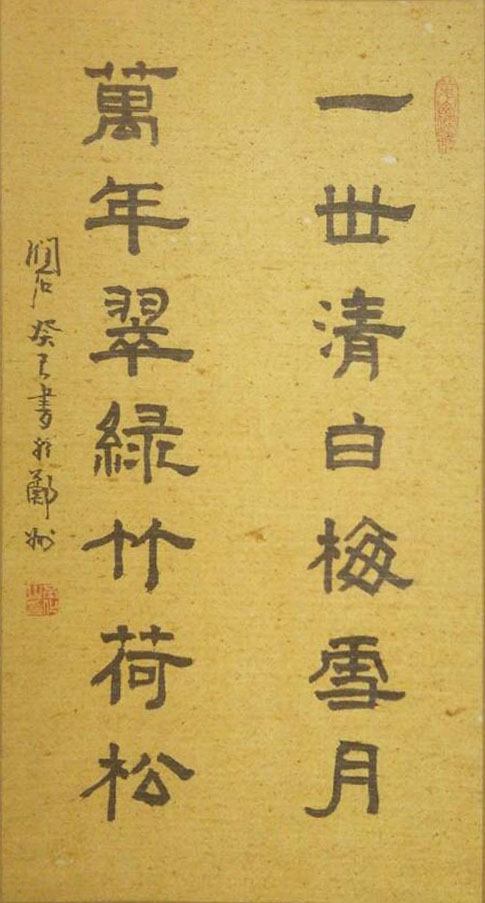 一世清白梅雪月
萬年翠綠竹荷松
癸巳書於鄭州